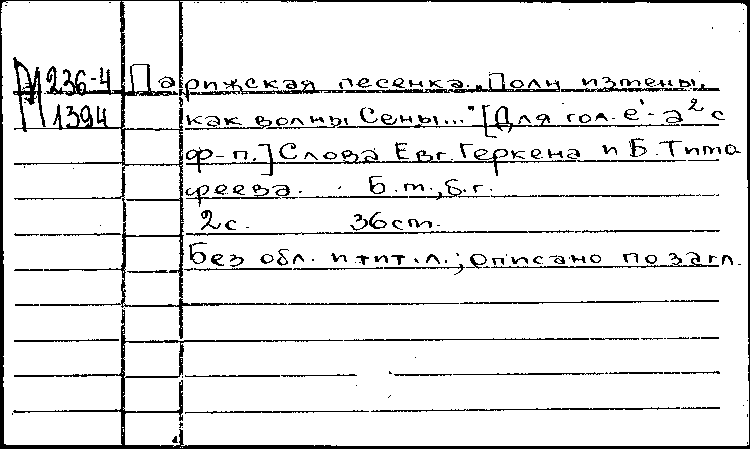 М 236-4 Парижская песенка. „Полн измены,
1394 как волны Сены..." [Для гол. e¹-a² с
ф-п.] Слова Евг. Геркена и Б. Тимо
феева. Б.m., б.г.
2с. 36cm.
Без обл. и тит. л.; описано по загл.